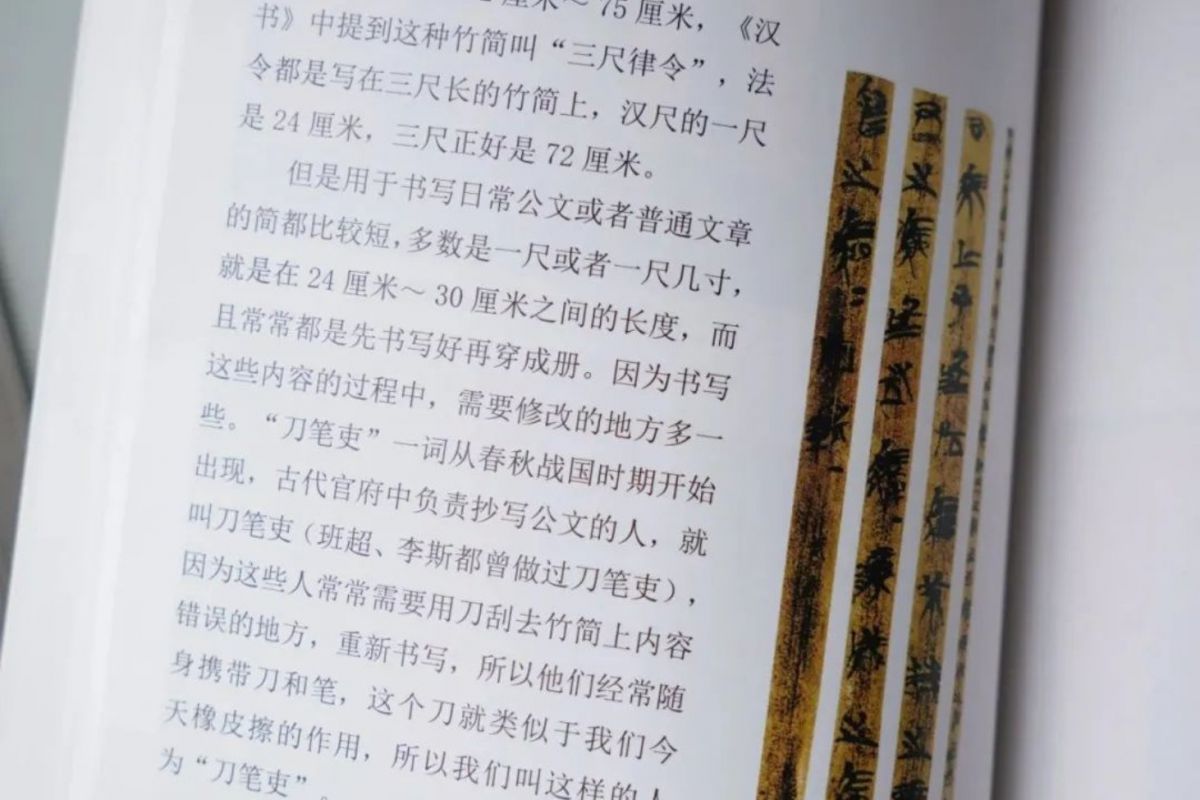 厘米～75厘米，《汉
书》中提到这种竹简叫“三尺律令”，法
令都是写在三尺长的竹简上，汉尺的一尺
是24厘米，三尺正好是72厘米。
但是用于书写日常公文或者普通文章
的简都比较短，多数是一尺或者一尺几寸，
就是在24厘米～30厘米之间的长度，而
且常常都是先书写好再穿成册。因为书写
这些内容的过程中，需要修改的地方多一
些。“刀笔吏”一词从春秋战国时期开始
出现，古代官府中负责抄写公文的人，就
叫刀笔吏（班超、李斯都曾做过刀笔吏），
因为这些人常常需要用刀刮去竹简上内容
错误的地方，重新书写，所以他们经常随
身携带刀和笔，这个刀就类似于我们今
天橡皮擦的作用，所以我们叫这样的人
为“刀笔吏”。